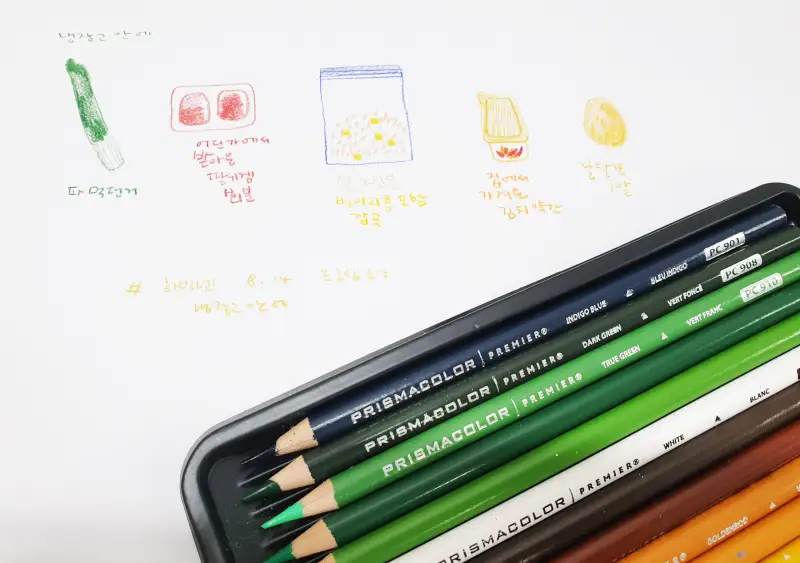 냉장고 안에
파 먹던거
어딘가에서
받아온
딸기잼
2개
병아리콩 포함
잡곡
집에서
가져온
김치 약간
달달보
1알
냉장고 안에
PRISMACOLOR | PREMIER® INDIGO BLUE BLEU INDIGO PC 901
PRISMACOLOR | PREMIER® DARK GREEN VERT FONCÉ PC 908
PRISMACOLOR | PREMIER® TRUE GREEN VERT FRANC PC 910
PRISMACOLOR | PREMIER® WHITE BLANC
GOLDENROD